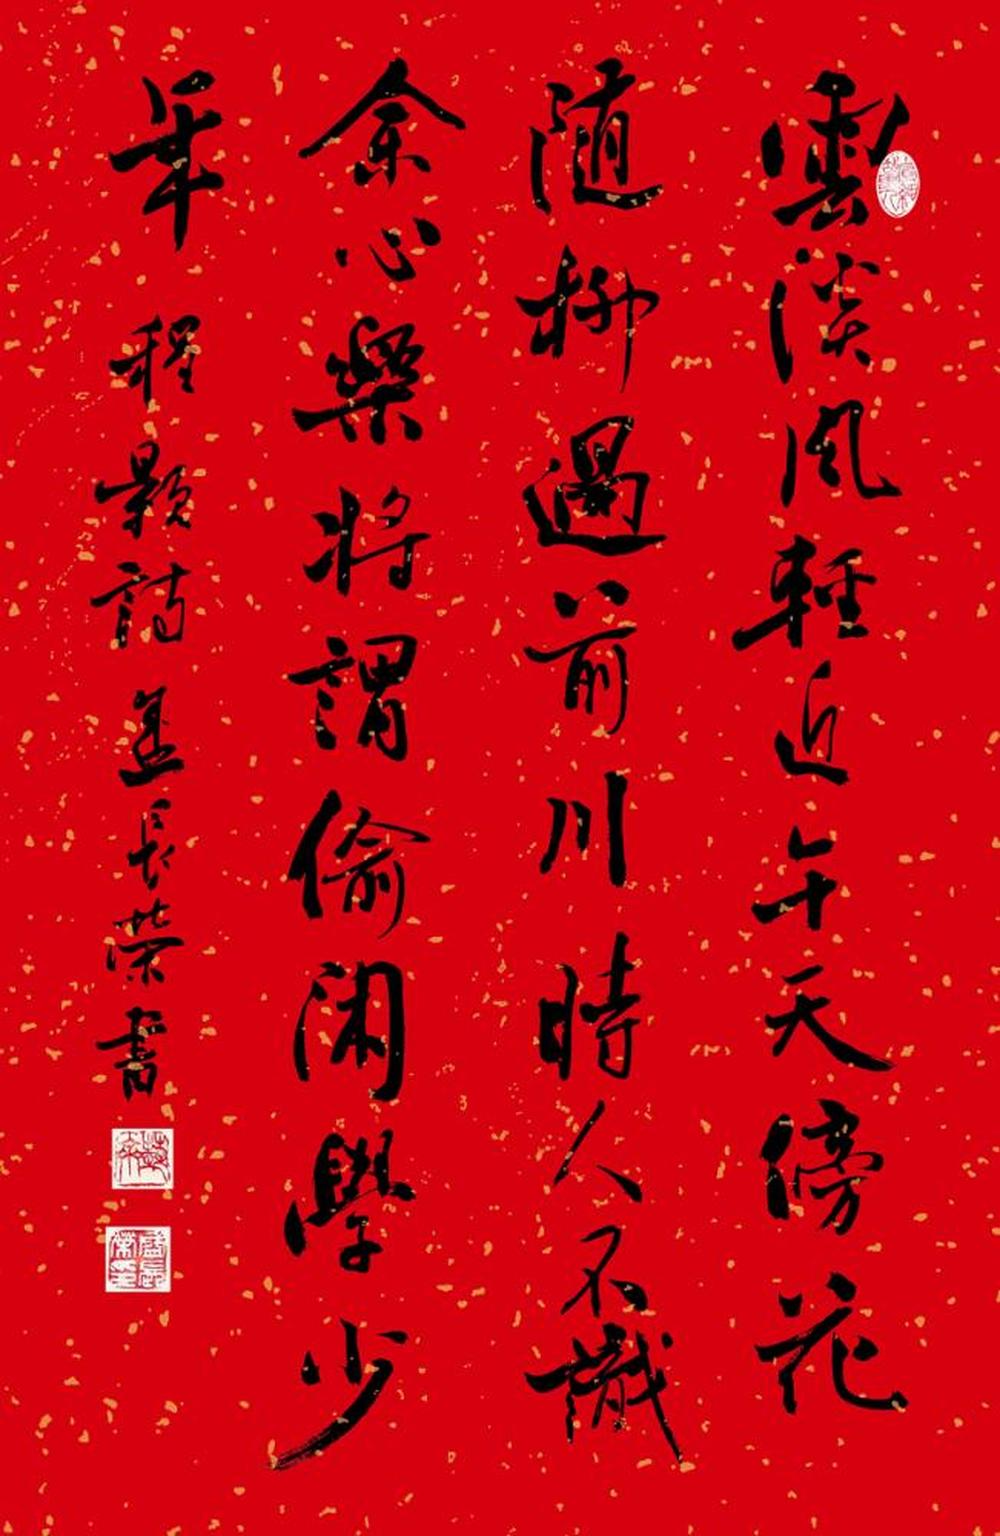 雲淡風輕近午天傍花
隨柳過前川時人不識
余心樂將謂偷閑學少
年 程顥詩 孟長榮書